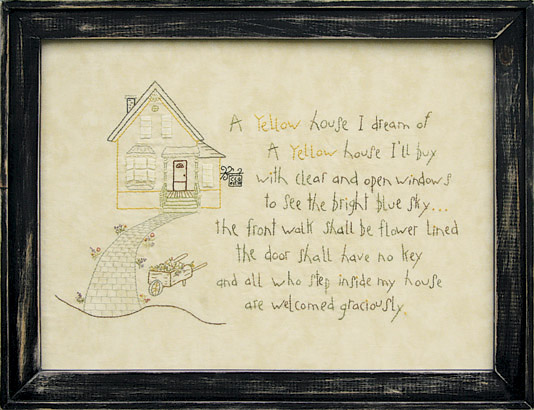 A Yellow house I dream of
A Yellow house I'll buy
with clear and open windows
to see the bright blue sky...
the front walk shall be flower lined
the door shall have no key
and all who step inside my house
are welcomed graciously.